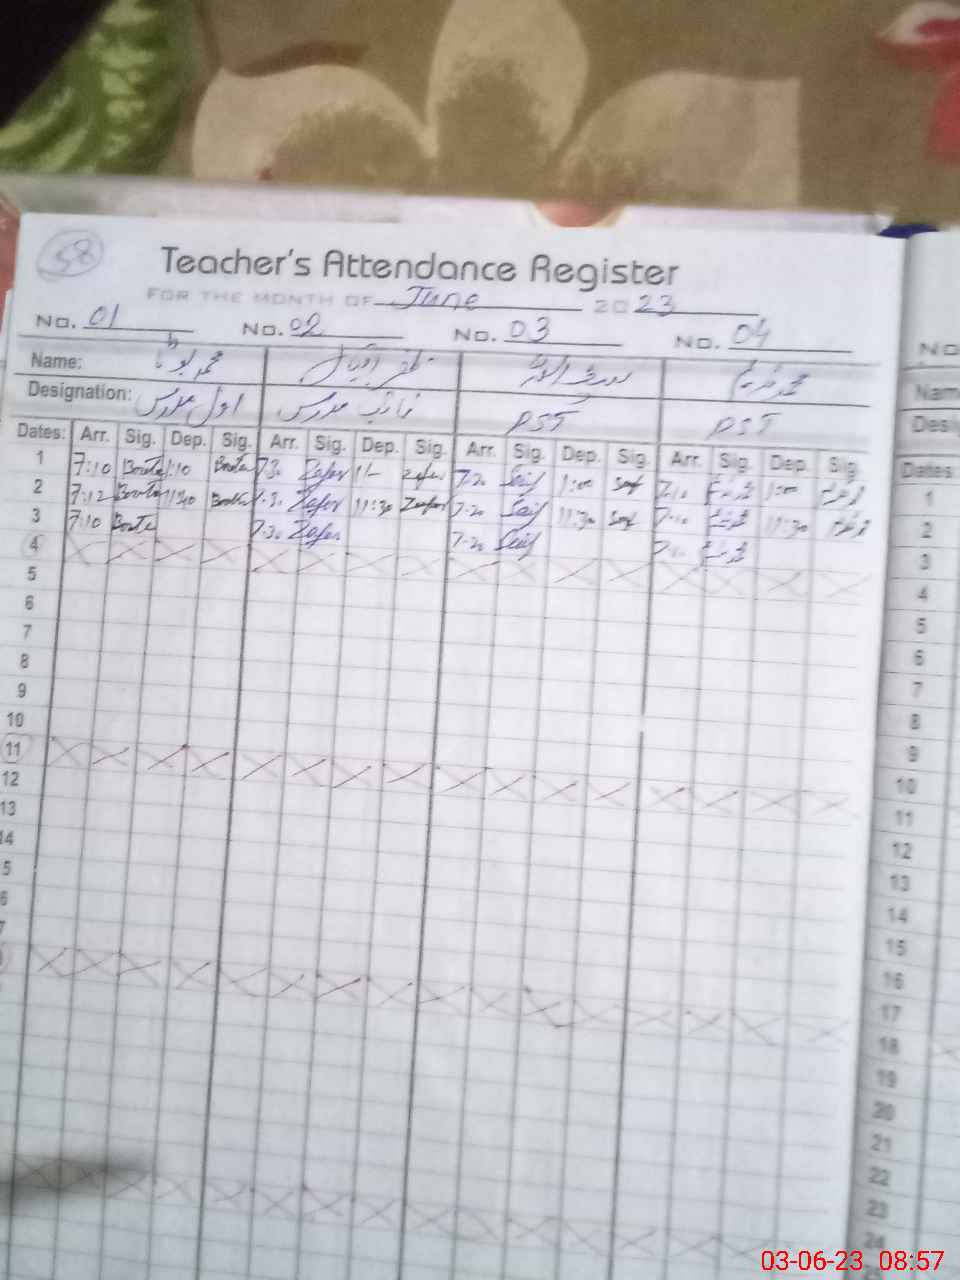 58
Teacher's Attendance Register
FOR THE MONTH OF June 2023
No. 01 No. 02 No. 03 No. 04
Name: محمد بوٹا ظفر اقبال محمد
Designation: اول مدرس نائب مدرس PST PST
Dates: Arr. Sig. Dep. Sig. Arr. Sig. Dep. Sig. Arr. Sig. Dep. Sig. Arr. Sig. Dep. Sig.
1 7:10 Boota 1:10 Boota 7:30 Zafar Zafar 7:20 Saif 1:00 Saif 7:10 1:00
2 7:12 Boota 11:30 Boota 7:30 Zafar 11:30 Zafar 7:20 Saif 11:30 Saif 7:10 11:30
3 7:10 Boota 7:30 Zafar 7:20 Saif 7:10
4
5
6
7
8
9
10
11
12
13
14
5
6
7
No
Nam
Desi
Dates
1
2
3
4
5
6
7
8
9
10
11
12
13
14
15
16
17
18
19
20
21
22
23
24
03-06-23 08:57